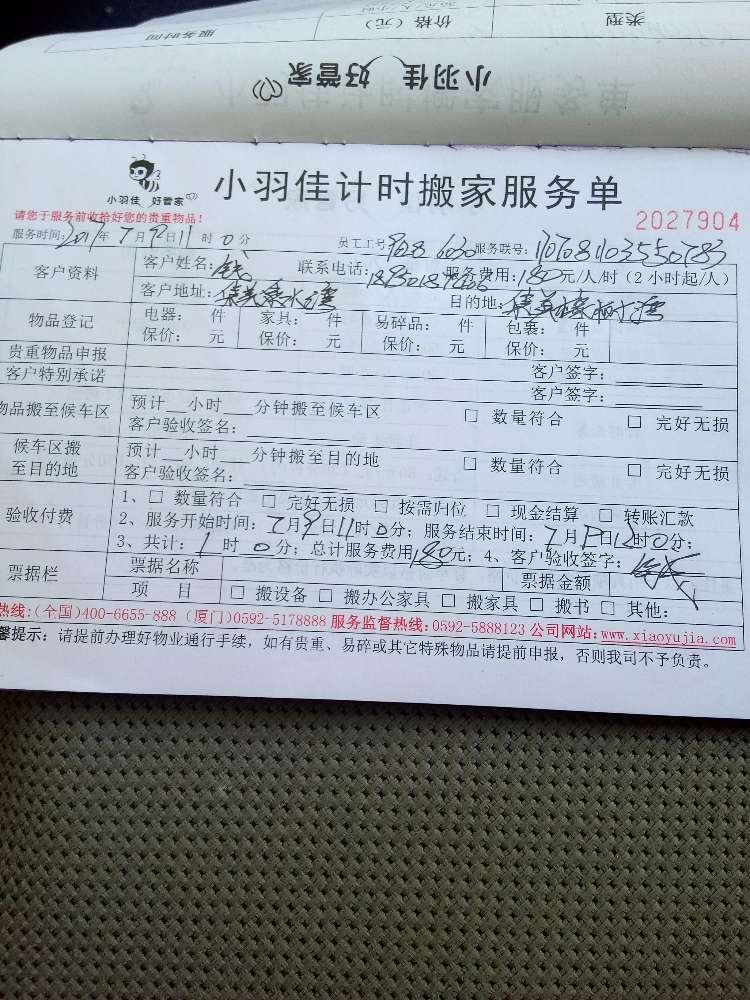 服务时间 价格（元） 类型
小羽佳 好管家
小羽佳 好管家
小羽佳计时搬家服务单
2027904
请您于服务前收拾好您的贵重物品！
服务时间：2017年7月9日11时0分 员工工号 服务联号：
客户资料 客户姓名：钱 联系电话： 服务费用：180元/人/时（2小时起/人）
客户地址： 目的地：
物品登记 电器： 件 家具： 件 易碎品： 件 包裹： 件
保价： 元 保价： 元 保价： 元 保价： 元
贵重物品申报 客户签字：
客户特别承诺 客户签字：
物品搬至候车区 预计__小时__分钟搬至候车区 □ 数量符合 □ 完好无损
客户验收签名：
候车区搬至目的地 预计__小时__分钟搬至目的地 □ 数量符合 □ 完好无损
客户验收签名：
验收付费 1、□ 数量符合 □ 完好无损 □ 按需归位 □ 现金结算 □ 转账汇款
2、服务开始时间：7月9日11时0分；服务结束时间：7月9日12时0分；
3、共计：1时0分；总计服务费用180元；4、客户验收签字：
票据栏 票据名称 票据金额
项 目 □ 搬设备 □ 搬办公家具 □ 搬家具 □ 搬书 □ 其他：
热线:(全国)400-6655-888 (厦门)0592-5178888 服务监督热线:0592-5888123 公司网站:www.xiaoyujia.com
馨提示：请提前办理好物业通行手续，如有贵重、易碎或其它特殊物品请提前申报，否则我司不予负责。